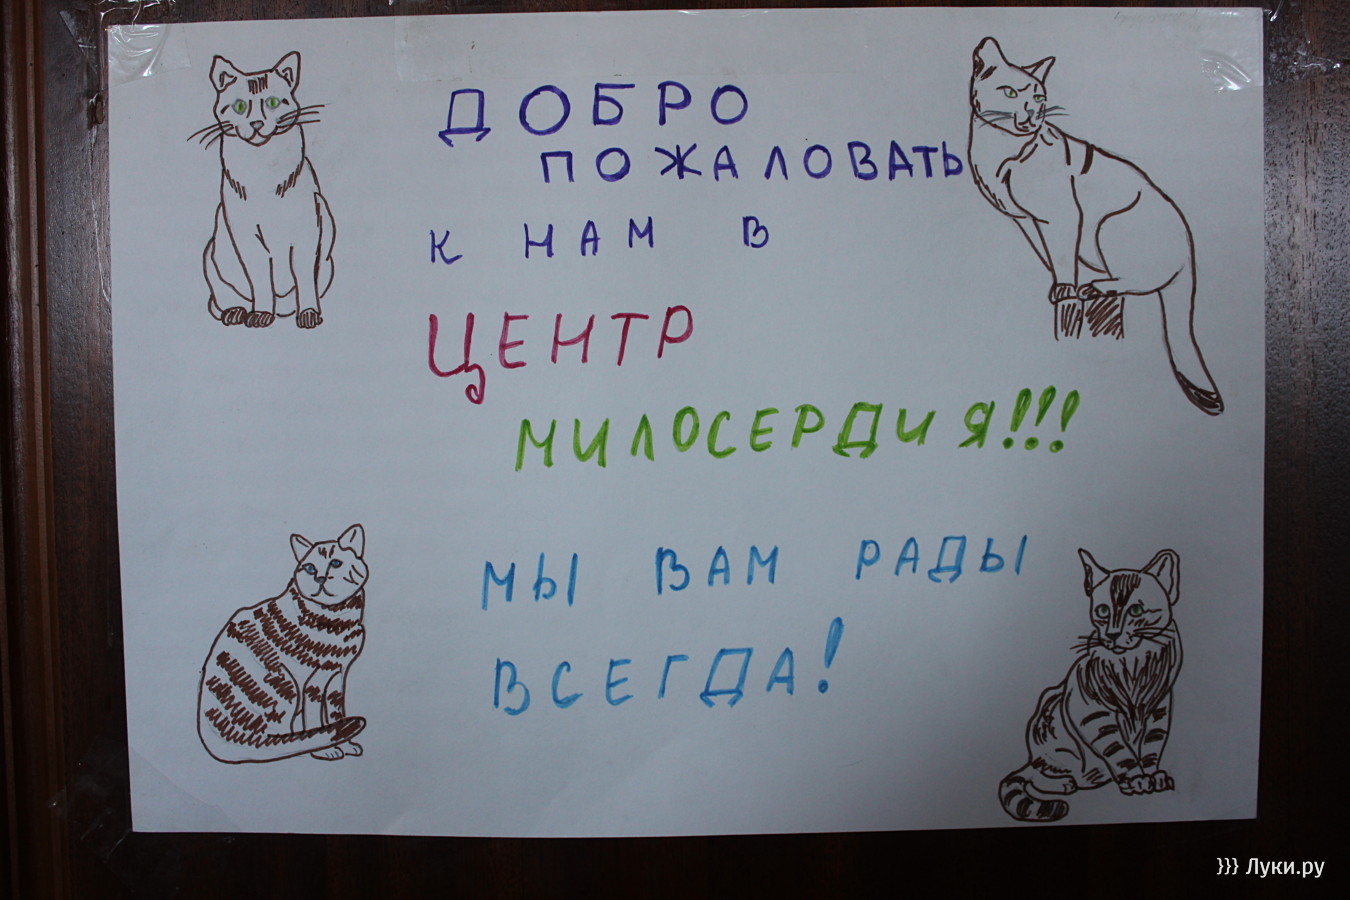 ДОБРО
ПОЖАЛОВАТЬ
К НАМ В
ЦЕНТР
МИЛОСЕРДИЯ!!!
МЫ ВАМ РАДЫ
ВСЕГДА!
}}} Луки.ру